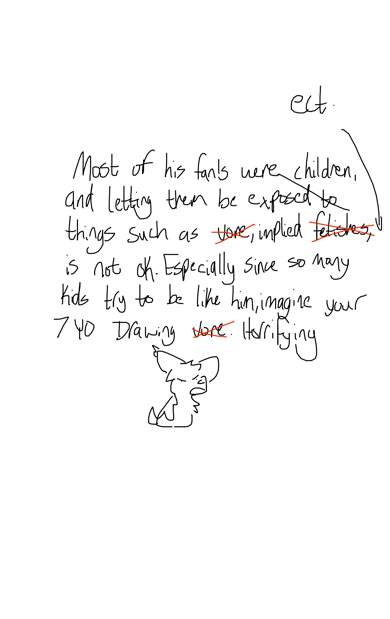 ect.
Most of his fants were children,
and letting them be exposed to
things such as vore, implied fetishes,
is not ok. Especially since so many
kids try to be like him, imagine your
7 YO Drawing vore. Horrifying